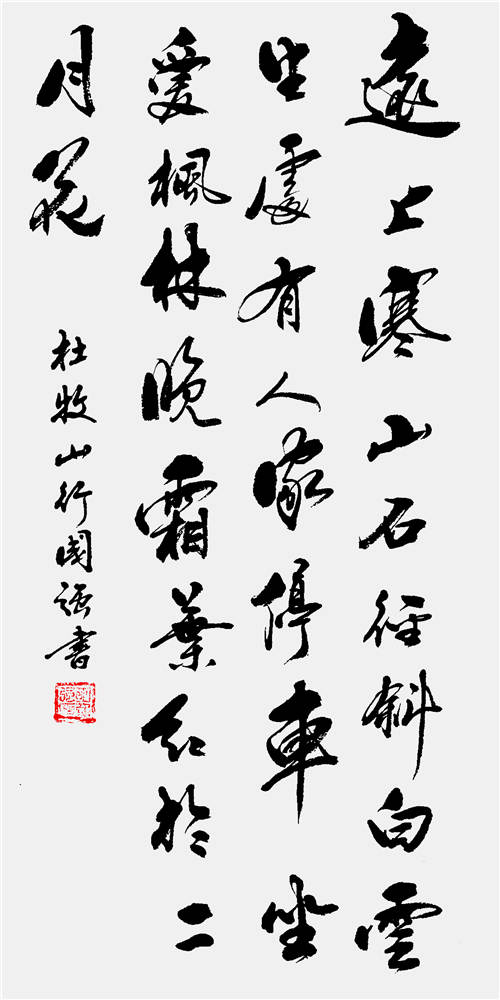 遠上寒山石徑斜白雲
生處有人家停車坐
愛楓林晚霜葉紅於二
月花
杜牧山行國強書